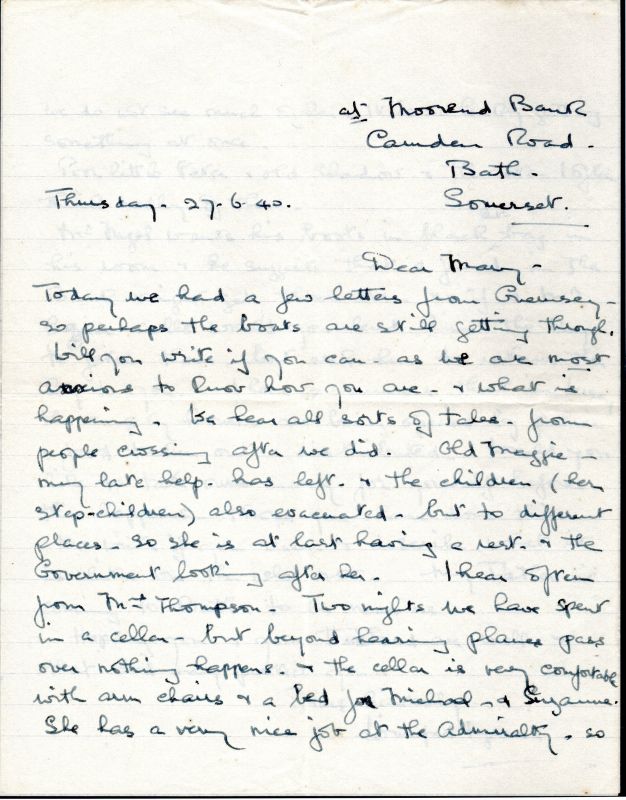 at Moorend Bank
Camden Road.
Bath.
Thursday. 27.6.40.
Somerset.
Dear Mary -
Today we had a few letters from Guernsey -
so perhaps the boats are still getting through.
Will you write if you can as we are most
anxious to know how you are - & what is
happening. We hear all sorts of tales. from
people crossing after we did. Old Maggie -
my late help. has left. & the children (her
step-children) also evacuated - but to different
places - so she is at last having a rest. & the
Government looking after her. I hear often
from Mrs Thompson - Two nights we have spent
in a cellar - but beyond hearing planes pass
over nothing happens. & the cellar is very comfortable
with arm chairs & a bed for Michael & Suzanne.
She has a very nice job at the Admiralty. so